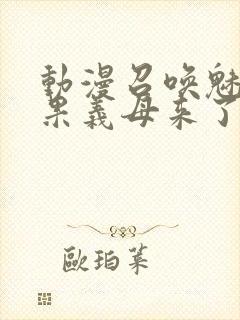 動漫召喚魅
果義母来了
歐珀萊